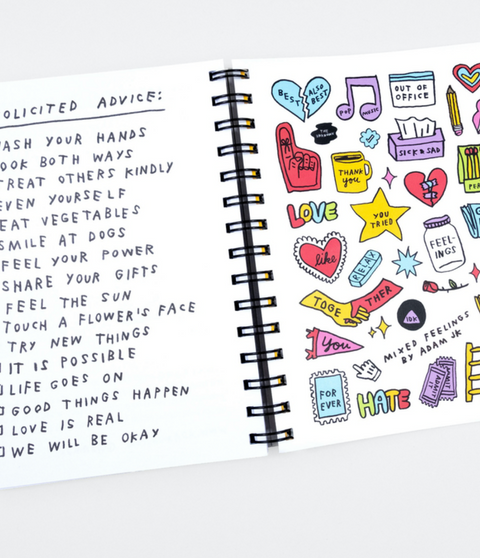 OLICITED ADVICE:
WASH YOUR HANDS
OOK BOTH WAYS
TREAT OTHERS KINDLY
EVEN YOURSELF
EAT VEGETABLES
SMILE AT DOGS
FEEL YOUR POWER
SHARE YOUR GIFTS
FEEL THE SUN
TOUCH A FLOWER'S FACE
TRY NEW THINGS
IT IS POSSIBLE
LIFE GOES ON
GOOD THINGS HAPPEN
LOVE IS REAL
WE WILL BE OKAY
BEST
ALSO BEST
POP MUSIC
OUT OF
OFFICE
THE
SICK & SAD
THANK
YOU
LOVE
YOU
TRIED
FEEL-
INGS
like
RELAX
TOGE THER
IDK
You
MIXED FEELINGS
BY ADAM JK
FOR
EVER
HATE
ADMIT